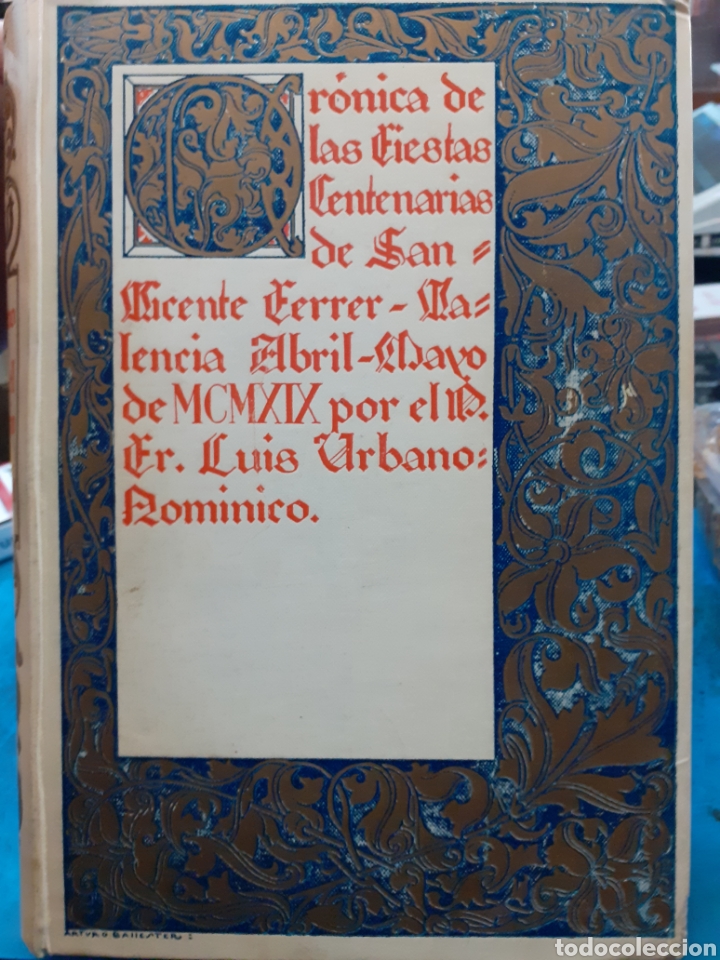 Crónica de
las Fiestas
Centenarias
de San=
Vicente Ferrer-Va-
lencia Abril-Mayo
de MCMXIX por el P.
Fr. Luis Urbano=
Dominico.
ARTURO BALLESTER:
todocoleccion